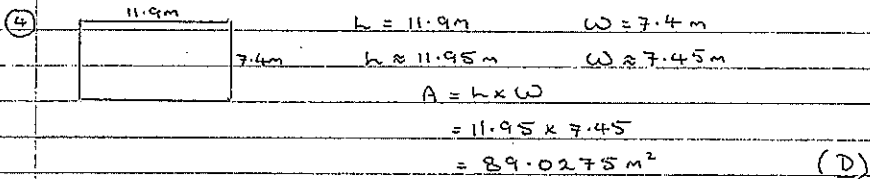 ④ 11.9m L = 11.9m W = 7.4 m
7.4m L ≈ 11.95 m W ≈ 7.45m
A = L x W
= 11.95 x 7.45
= 89.0275 m² (D)